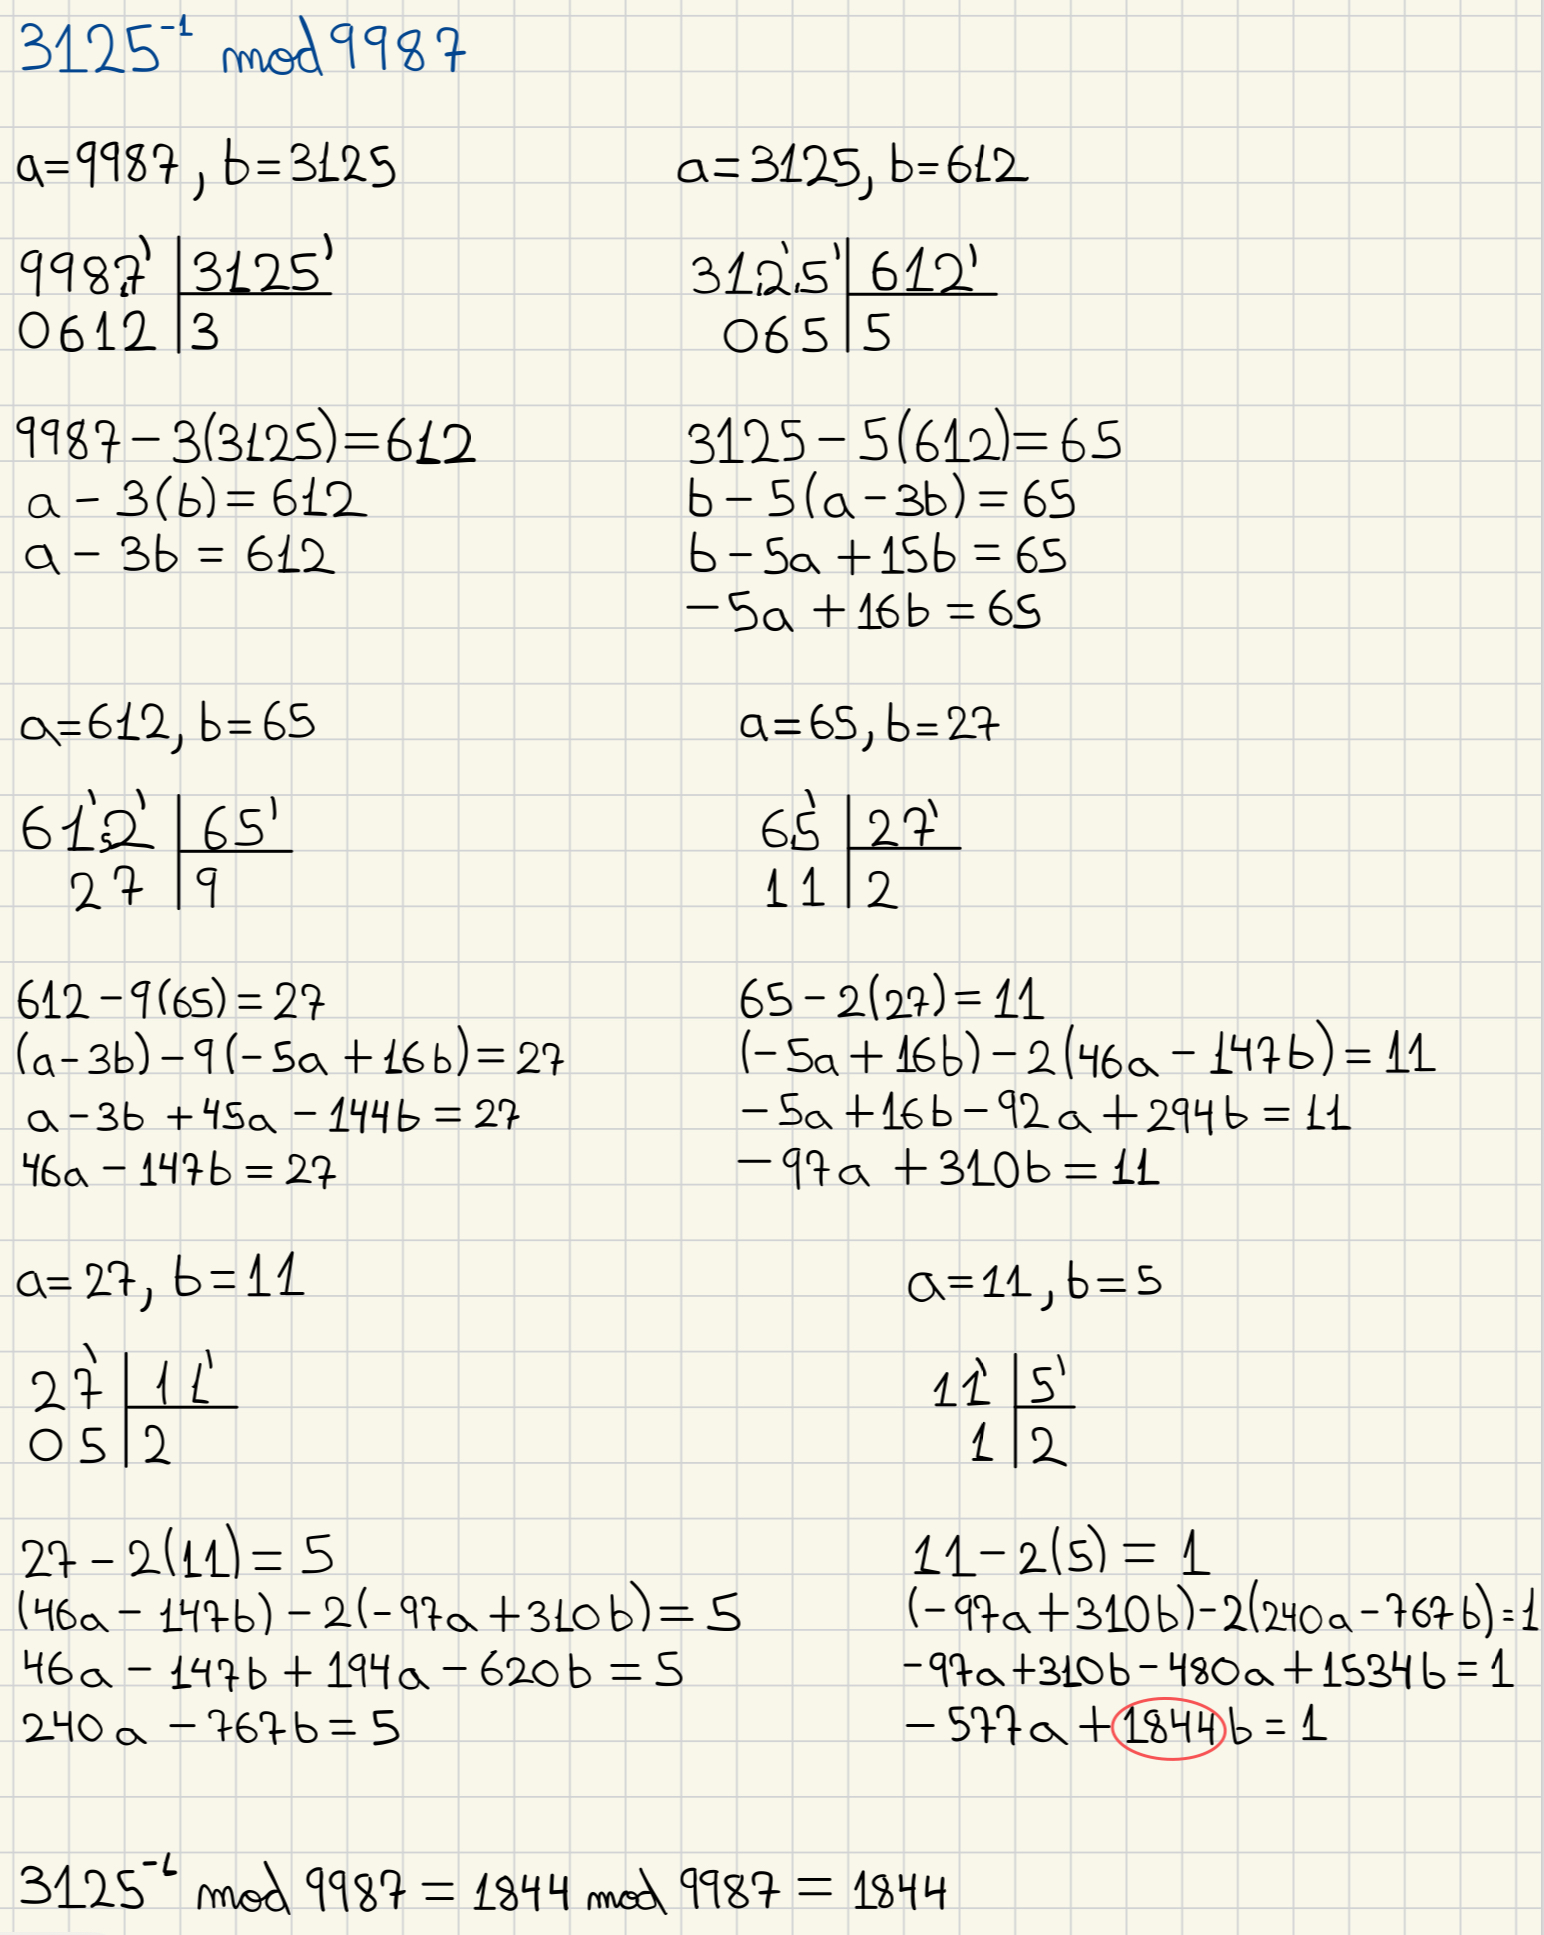 3125⁻¹ mod 9987
a=9987, b=3125
9987 | 3125
0612 | 3
9987 - 3(3125) = 612
a - 3(b) = 612
a - 3b = 612
a=3125, b=612
3125 | 612
065 | 5
3125 - 5(612) = 65
b - 5(a - 3b) = 65
b - 5a + 15b = 65
-5a + 16b = 65
a=612, b=65
612 | 65
27 | 9
612 - 9(65) = 27
(a - 3b) - 9(-5a + 16b) = 27
a - 3b + 45a - 144b = 27
46a - 147b = 27
a=65, b=27
65 | 27
11 | 2
65 - 2(27) = 11
(-5a + 16b) - 2(46a - 147b) = 11
-5a + 16b - 92a + 294b = 11
-97a + 310b = 11
a=27, b=11
27 | 11
05 | 2
27 - 2(11) = 5
(46a - 147b) - 2(-97a + 310b) = 5
46a - 147b + 194a - 620b = 5
240a - 767b = 5
a=11, b=5
11 | 5
1 | 2
11 - 2(5) = 1
(-97a + 310b) - 2(240a - 767b) = 1
-97a + 310b - 480a + 1534b = 1
-577a + 1844b = 1
3125⁻¹ mod 9987 = 1844 mod 9987 = 1844